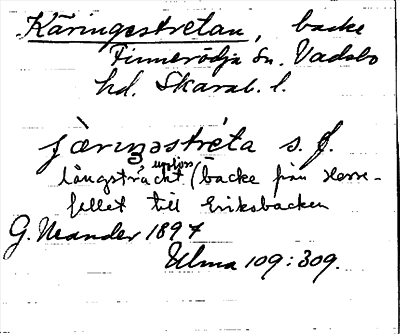 Käringestretan, backe
Finnerödja Sn. Vadsbo
hd. Skarab. l.
jæriŋəstréta s. f.
upplöst
långsträckt (backe från Herre-
fellet till Eriksbacken
G. Neander 1897
Ulma 109:309.